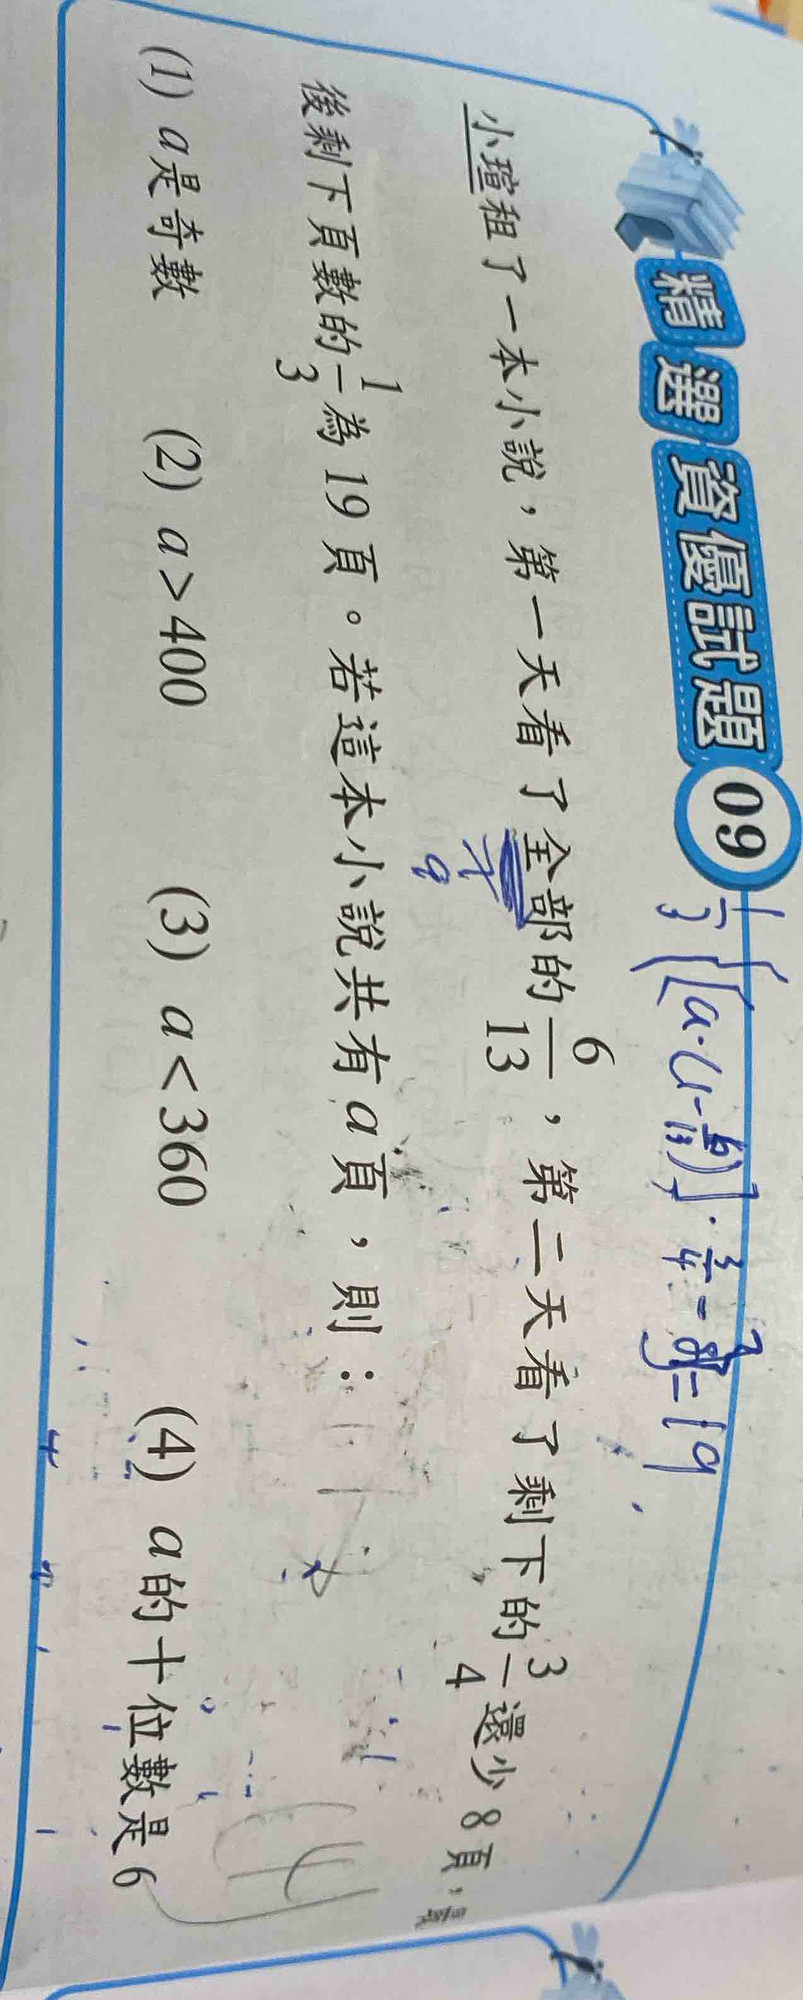 精選資優試題 09
1/3{[a·(1-6/13)]·3/4-8}=19
小瑄租了一本小說，第一天看了全部的6/13，第二天看了剩下的3/4還少8頁，最
後剩下頁數的1/3為19頁。若這本小說共有a頁，則：
(1) a是奇數 (2) a>400 (3) a<360 (4) a的十位數是6